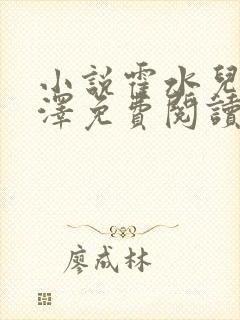 小說霍水兒
澤免費閱讀
廖成林